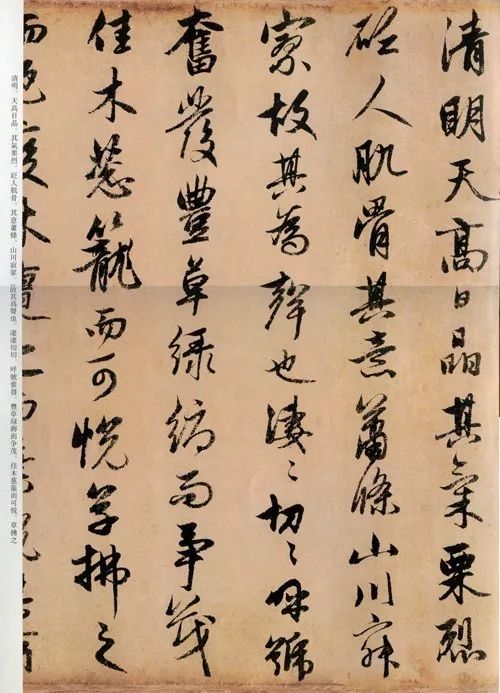 清明天高日晶其氣栗烈
砭人肌骨其意蕭條山川寂
寥故其為聲也凄〻切〻呼號
奮發豐草綠縟而爭茂
佳木葱籠而可悅草拂之
清明,天高日晶,其氣栗烈,砭人肌骨,其意蕭條,山川寂寥,故其爲聲也,凄凄切切,呼號奮發,豐草緑縟而争茂,佳木葱籠而可悅,草拂之